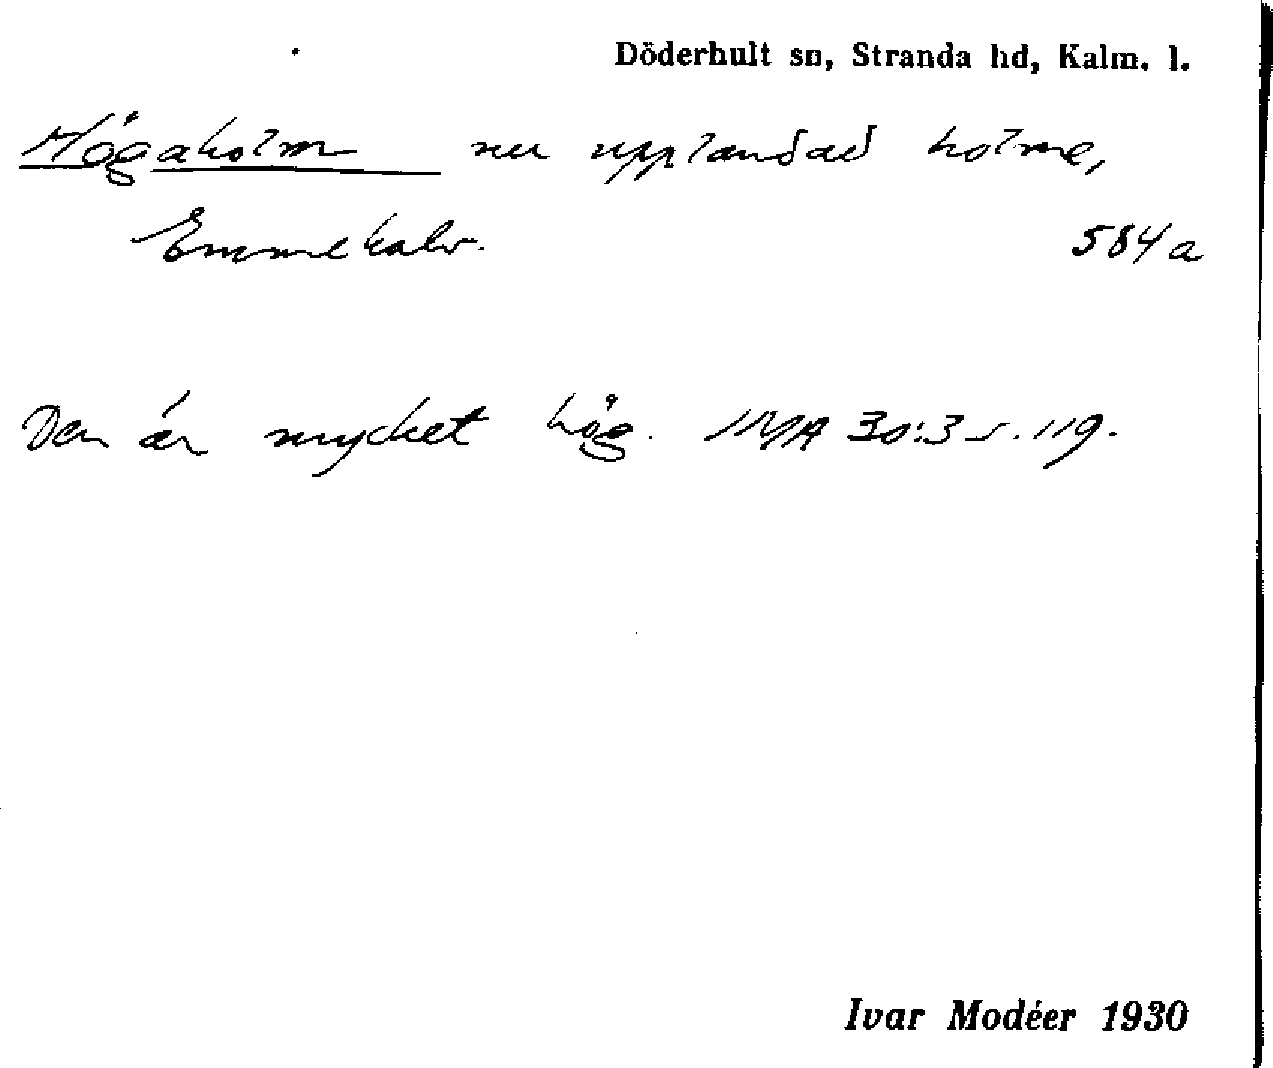 Döderhult sn, Stranda hd, Kalm. l.
Högaholm nu upplandad holme,
Emmekalv. 584a
Den är mycket hög. 30:3 s. 119.
Ivar Modéer 1930